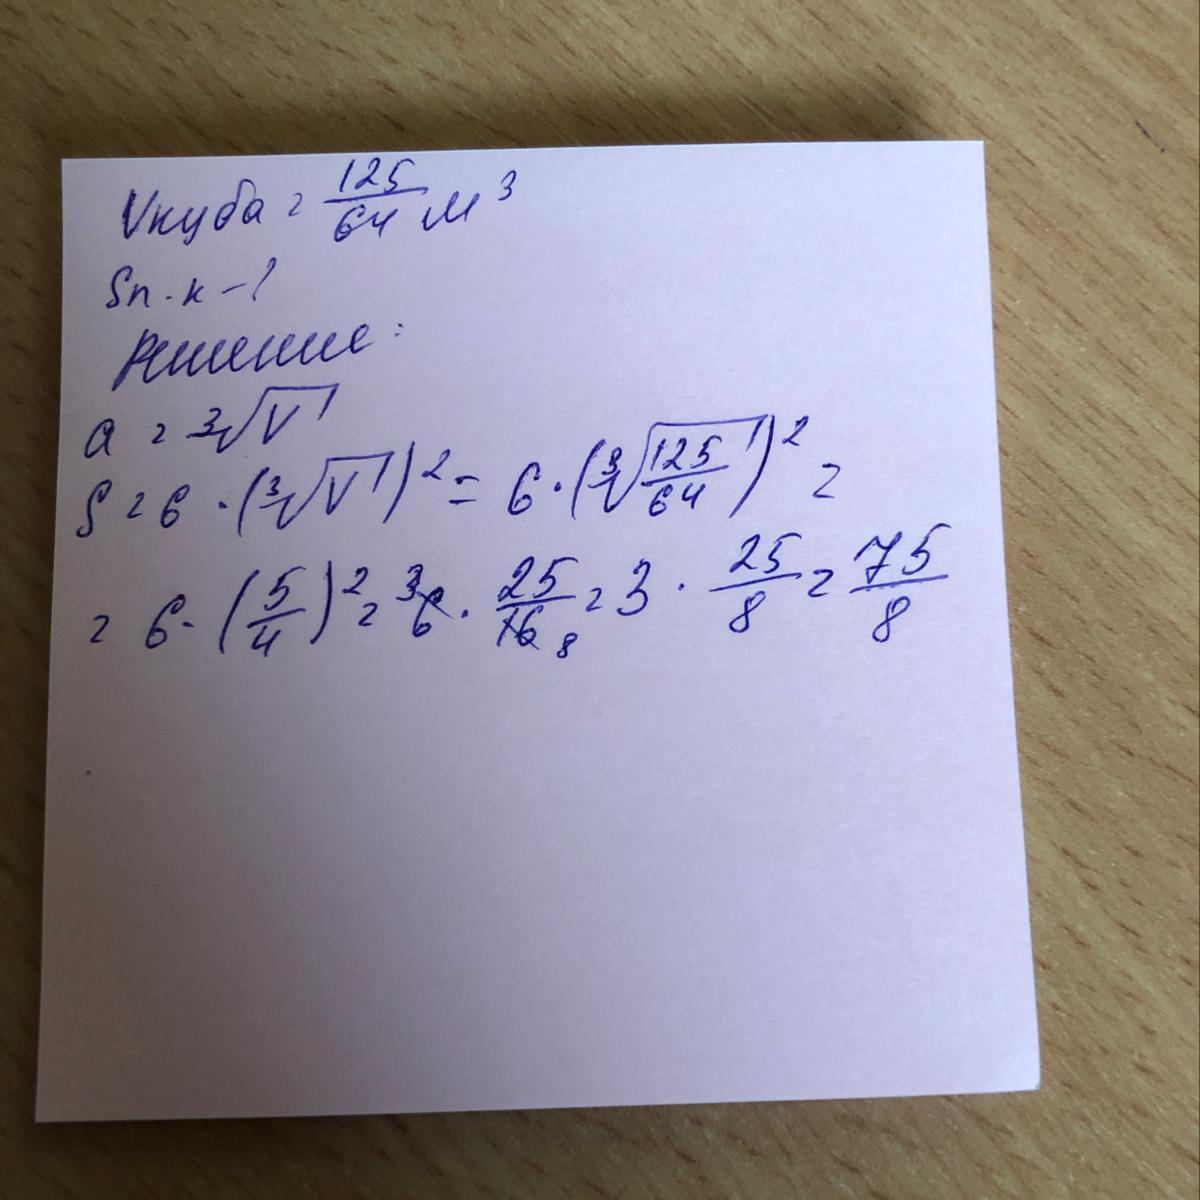 Vкуба = 125/64 м³
Sп.к - ?
Решение:
a = ∛V
S = 6 · (∛V)² = 6 · (∛125/64)² =
= 6 · (5/4)² = 6 3 · 25/16 8 = 3 · 25/8 = 75/8